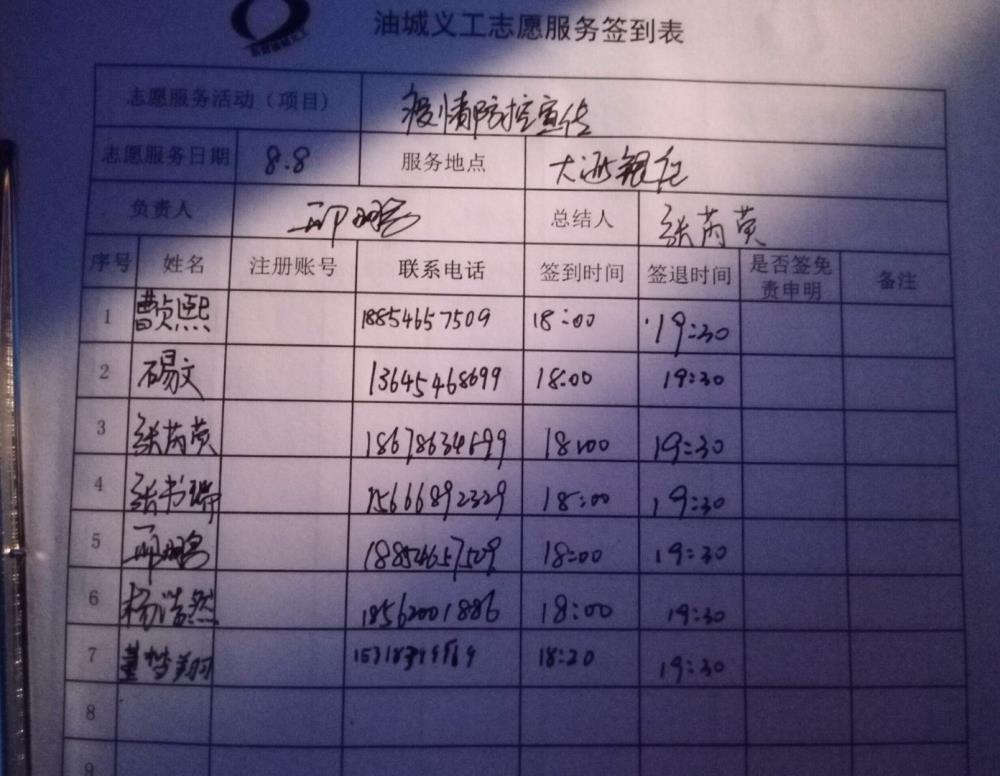 油城义工志愿服务签到表
志愿服务活动（项目） 疫情防控宣传
志愿服务日期 8.8 服务地点 大 银行
负责人 邱鹏 总结人 张芮英
序号 姓名 注册账号 联系电话 签到时间 签退时间 是否签免责申明 备注
1 曹贞熙 18854657509 18:00 19:30
2 文 13645468699 18:00 19:30
3 张芮英 18:00 19:30
4 张书 15666892329 18:00 19:30
5 邱鹏 18854657509 18:00 19:30
6 杨浩然 18562001886 18:00 19:30
7 董梦 18:20 19:30
8
9